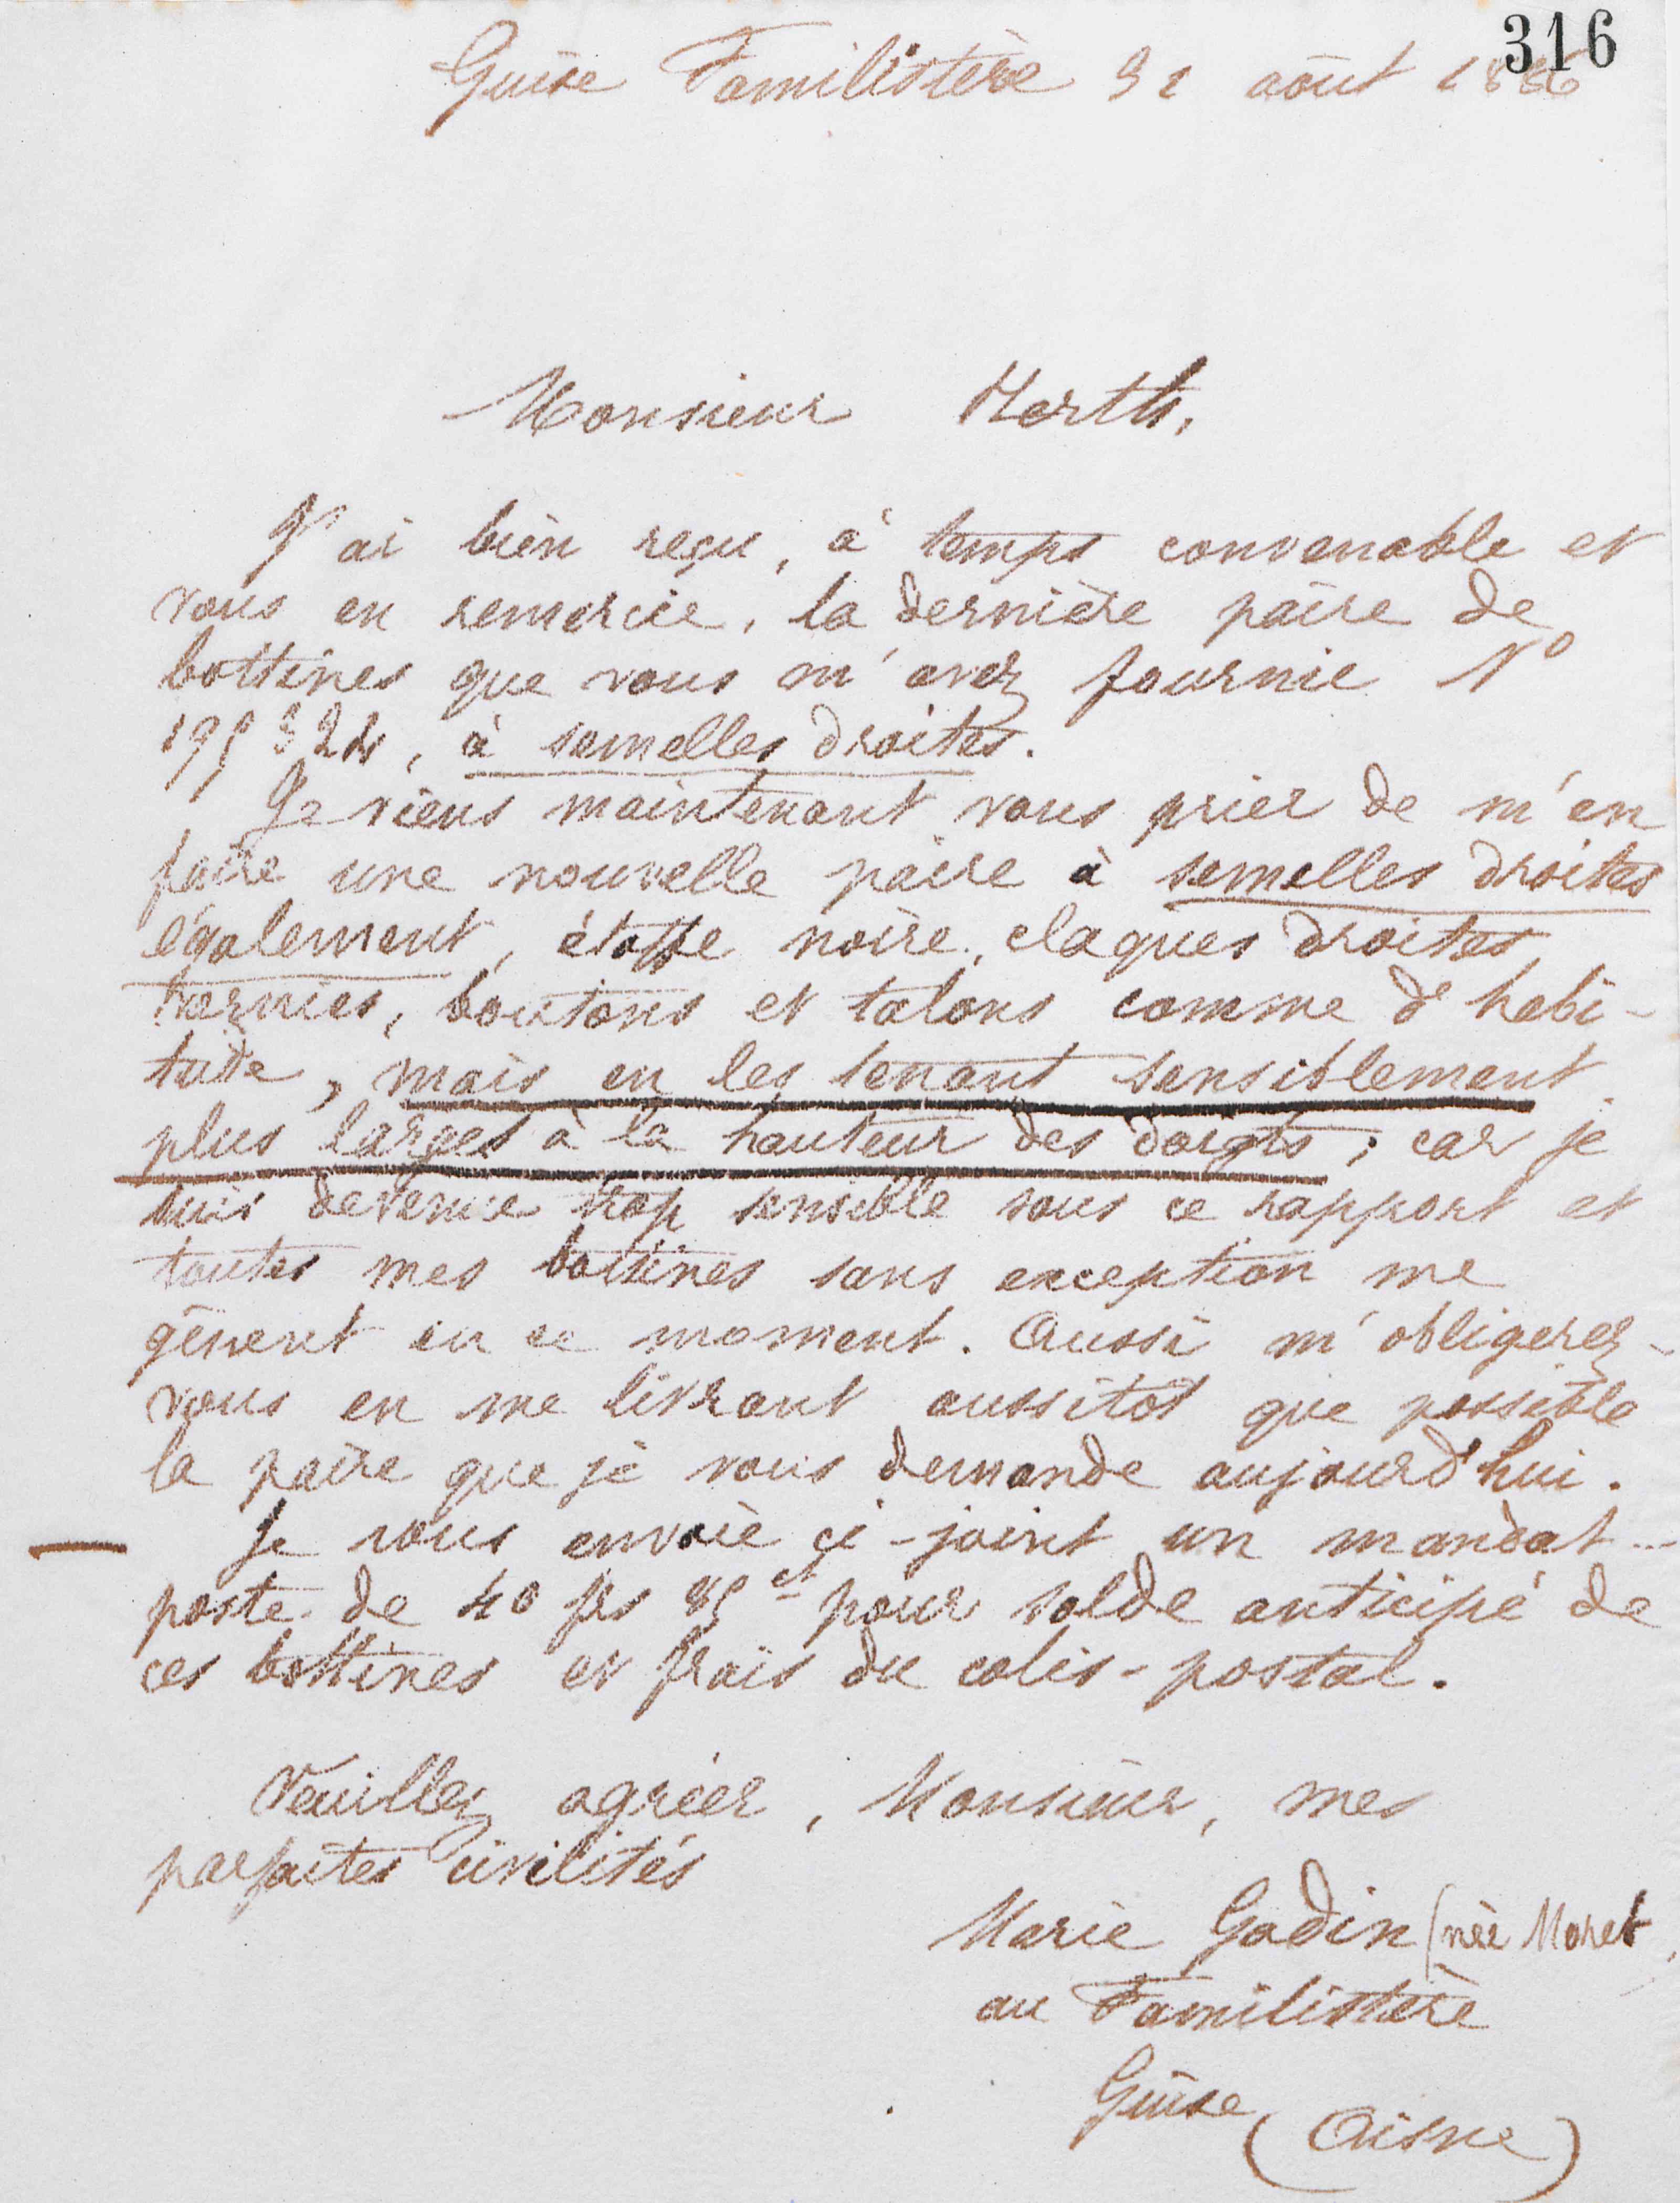 316
Guise Familistère 31 août 1886
Monsieur Herth,
J'ai bien reçu, à temps convenable et
vous en remercie, la dernière paire de
bottines que vous m'avez fournie N°
195324, à semelles droites.
Je viens maintenant vous prier de m'en
faire une nouvelle paire à semelles droites
également, étoffe noire, claques droites
vernies, boutons et talons comme d'habi-
tude, mais en les tenant sensiblement
plus larges à la hauteur des doigts; car je
suis devenue trop sensible sous ce rapport et
toutes mes bottines sans exception me
gênent en ce moment. Aussi m'obligerez-
vous en me livrant aussitôt que possible
la paire que je vous demande aujourd'hui.
Je vous envoie ci-joint un mandat-
poste de 40 frs 85 ct pour solde anticipé de
ces bottines et frais du colis-postal.
Veuillez agréer, Monsieur, mes
parfaites civilités
Marie Godin (née Moret
au Familistère
Guise (Aisne)